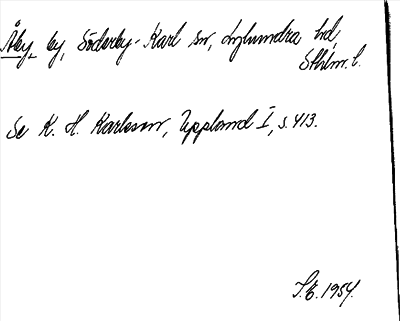 Åby, by, Söderby-Karl sn, Lyhundra hd,
Sthlm. l.
Se K. H. Karlsson, Uppland I, s. 413.
S.E. 1954.